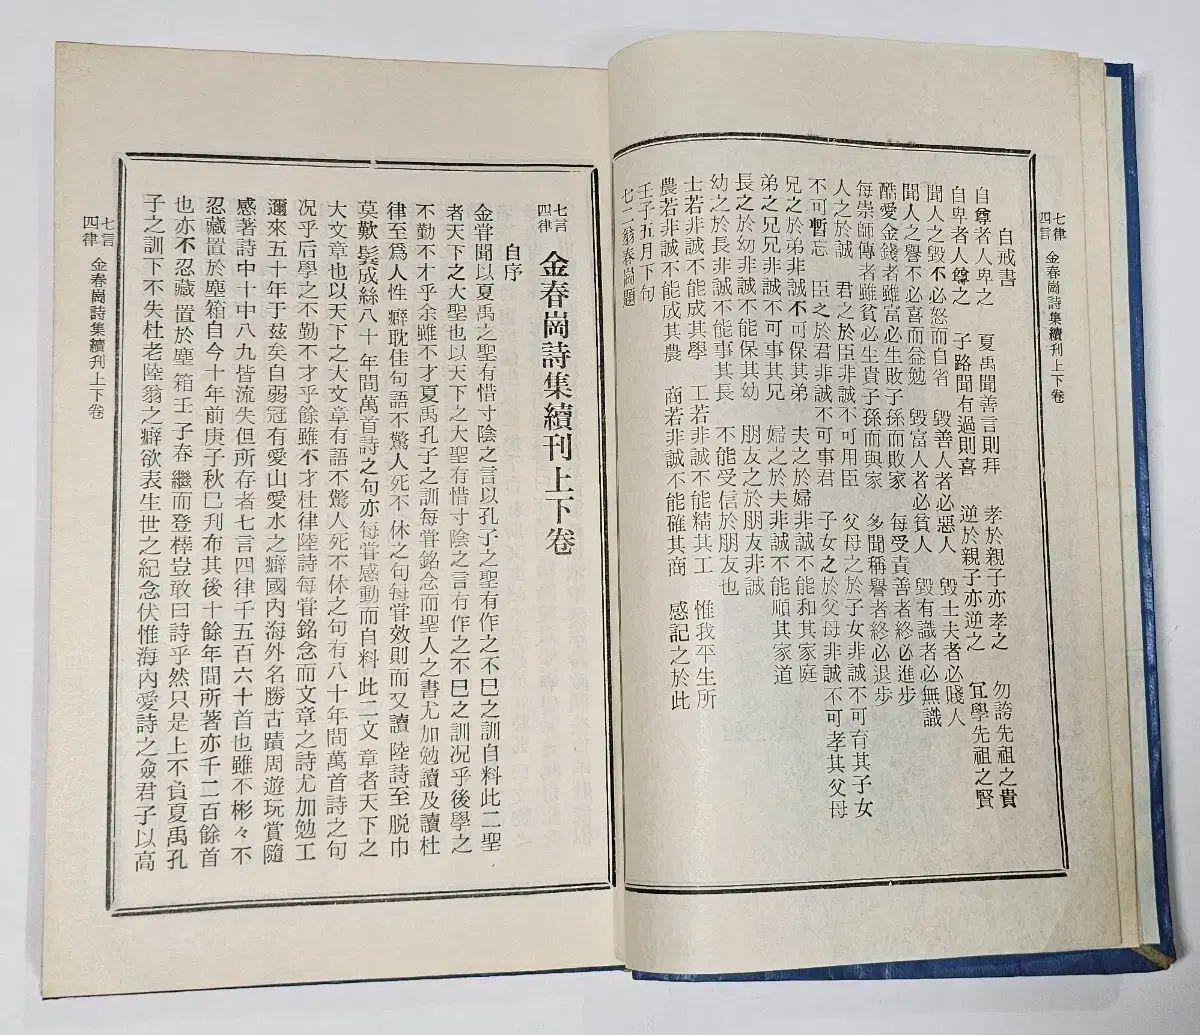 七律
四言 金春崗詩集續刊上下卷
自戒書
自尊者人卑之 夏禹聞善言則拜 孝於親子亦孝之 勿誇先祖之貴
自卑者人尊之 子路聞有過則喜 逆於親子亦逆之 宜學先祖之賢
聞人之毀不必怒而自省 毀善人者必惡人 毀士夫者必賤人
聞人之譽不必喜而益勉 毀富人者必貧人 毀有識者必無識
酷愛金錢者雖富必生敗子孫而敗家 每受責善者終必進步
每崇師傅者雖貧必生貴子孫而興家 多聞稱譽者終必退步
人之於誠 君之於臣非誠不可用臣 父母之於子女非誠不可育其子女
不可暫忘 臣之於君非誠不可事君 子女之於父母非誠不可孝其父母
兄之於弟非誠不可保其弟 夫之於婦非誠不能和其家庭
弟之於兄非誠不可事其兄 婦之於夫非誠不能順其家道
長之於幼非誠不能保其幼 朋友之於朋友非誠
幼之於長非誠不能事其長 不能受信於朋友也
士若非誠不能成其學 工若非誠不能精其工 惟我平生所
農若非誠不能成其農 商若非誠不能確其商 感記之於此
壬子五月下旬
七二翁春崗題
七言
四律 金春崗詩集續刊上下卷
自序
金甞聞以夏禹之聖有惜寸陰之言以孔子之聖有作之不已之訓自料此二聖
者天下之大聖也以天下之大聖有惜寸陰之言有作之不已之訓况乎後學之
不勤不才乎余雖不才夏禹孔子之訓每甞銘念而聖人之書尤加勉讀及讀杜
律至爲人性癖耽佳句語不驚人死不休之句每甞效則而又讀陸詩至脱巾
莫歎髮成絲八十年間萬首詩之句亦每甞感動而自料此二文章者天下之
大文章也以天下之大文章有語不驚人死不休之句有八十年間萬首詩之句
况乎后學之不勤不才乎餘雖不才杜律陸詩每甞銘念而文章之詩尤加勉工
邇來五十年于玆矣自弱冠有愛山愛水之癖國内海外名勝古蹟周遊玩賞隨
感著詩中十中八九皆流失但所存者七言四律千五百六十首也雖不彬々不
忍藏置於塵箱自今十年前庚子秋已刋布其後十餘年間所著亦千二百餘首
也亦不忍藏置於塵箱壬子春繼而登榟豈敢曰詩乎然只是上不負夏禹孔
子之訓下不失杜老陸翁之癖欲表生世之紀念伏惟海内愛詩之僉君子以高
七言
四律 金春崗詩集續刊上下卷